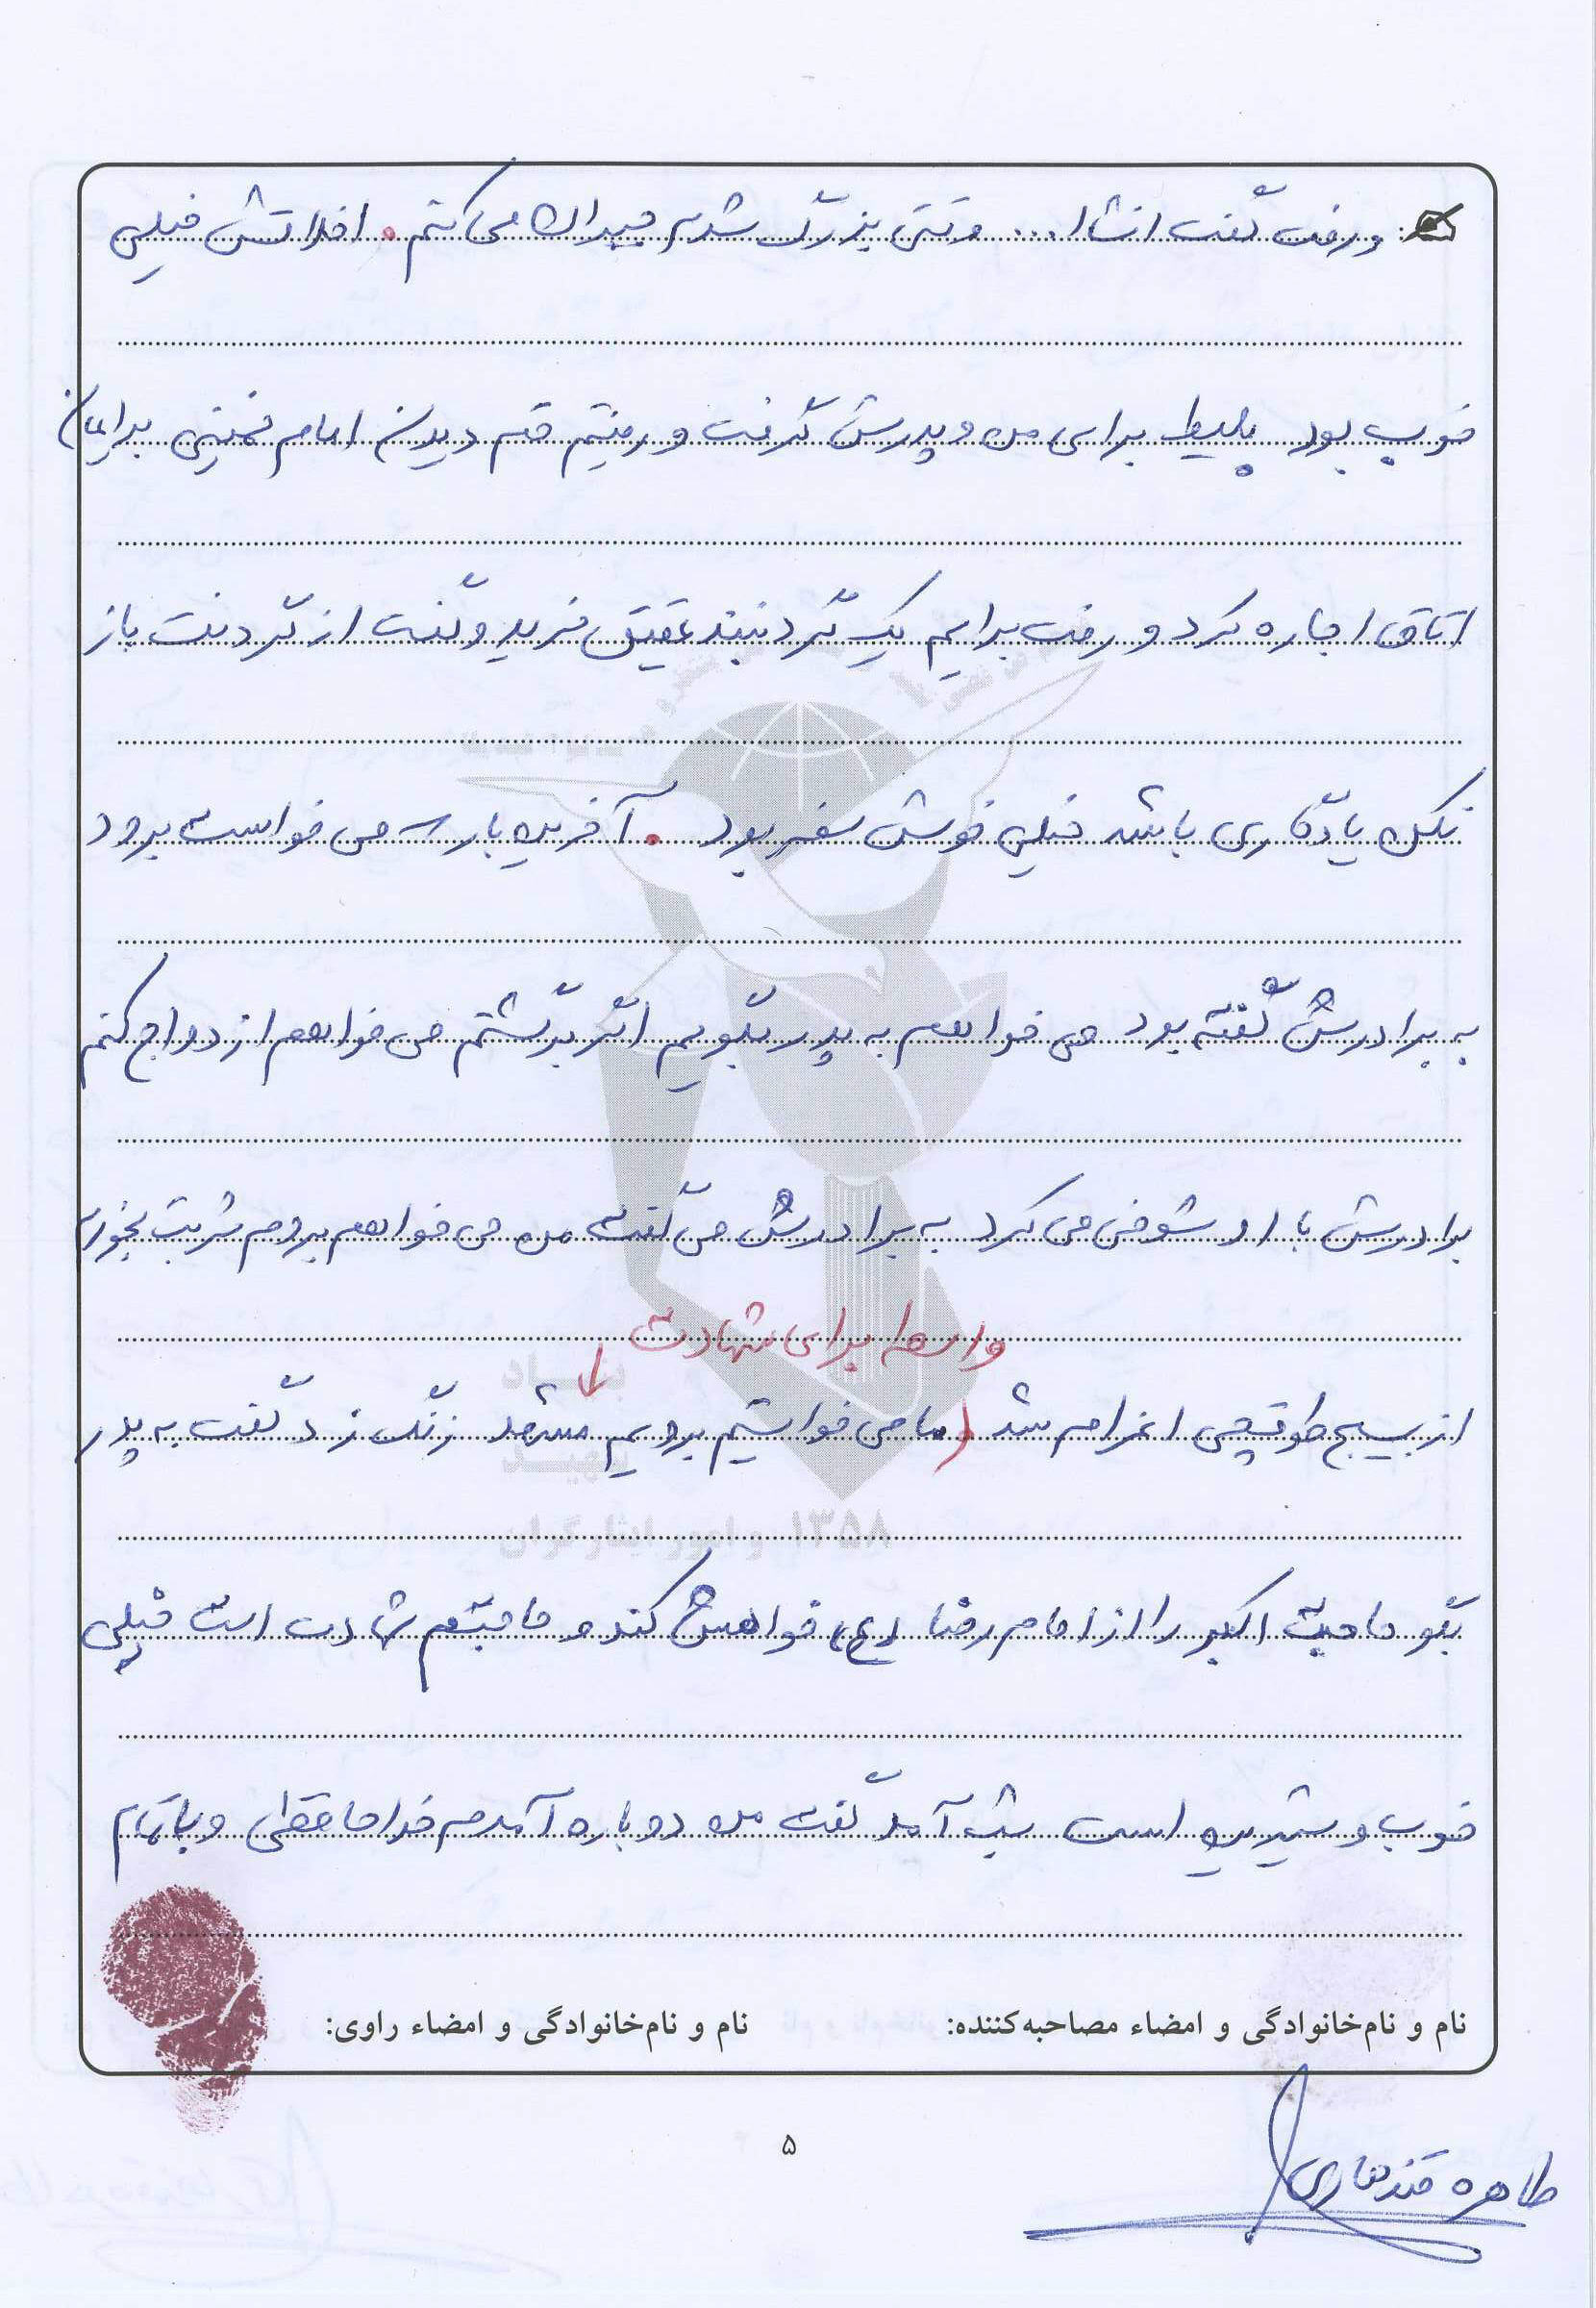 و رفت گفت انشاا... وقتی بزرگ شدم جبران می کنم . اخلاقش خیلی
خوب بود بلیط برای من و پدرش گرفت و رفتیم قم دیدن امام خمینی برایمان
اتاق اجاره کرد و رفت برایم یک گردنبند عقیق خرید و گفت از گردنت باز
نکن یادگاری باشد خیلی خوش سفر بود . آخرین بار که می خواست برود
به برادرش گفته بود می خواهم به پدر بگویم اگر برگشتم می خواهم ازدواج کنم
برادرش با او شوخی می کرد به برادرش می گفت من می خواهم بروم شربت بخورم
واسطه برای شهادت
از بسیج طوقچی اعزام شد (ما می خواستیم برویم مشهد زنگ زد گفت به پدر
بگو حاجت اکبر را از امام رضا (ع) خواهش کند و حاجتم شهادت است خیلی
خوب و شیرین است شب آمد گفت من دوباره آمدم خداحافظی و با تمام
بنیاد
شهید
و امور ایثارگران ۱۳۵۸
نام و نام‌خانوادگی و امضاء مصاحبه‌کننده: نام و نام‌خانوادگی و امضاء راوی:
۵
طاهره قندهاری